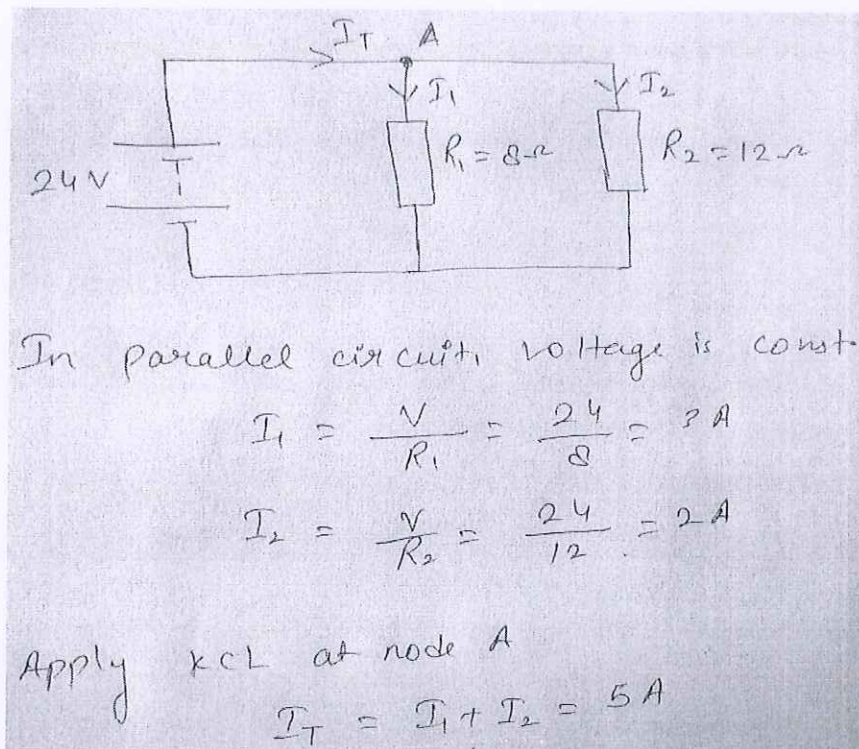 I_T A
I_1 I_2
24V R_1 = 8Ω R_2 = 12Ω
In parallel circuit, voltage is const.
I_1 = V/R_1 = 24/8 = 3A
I_2 = V/R_2 = 24/12 = 2A
Apply KCL at node A
I_T = I_1 + I_2 = 5A